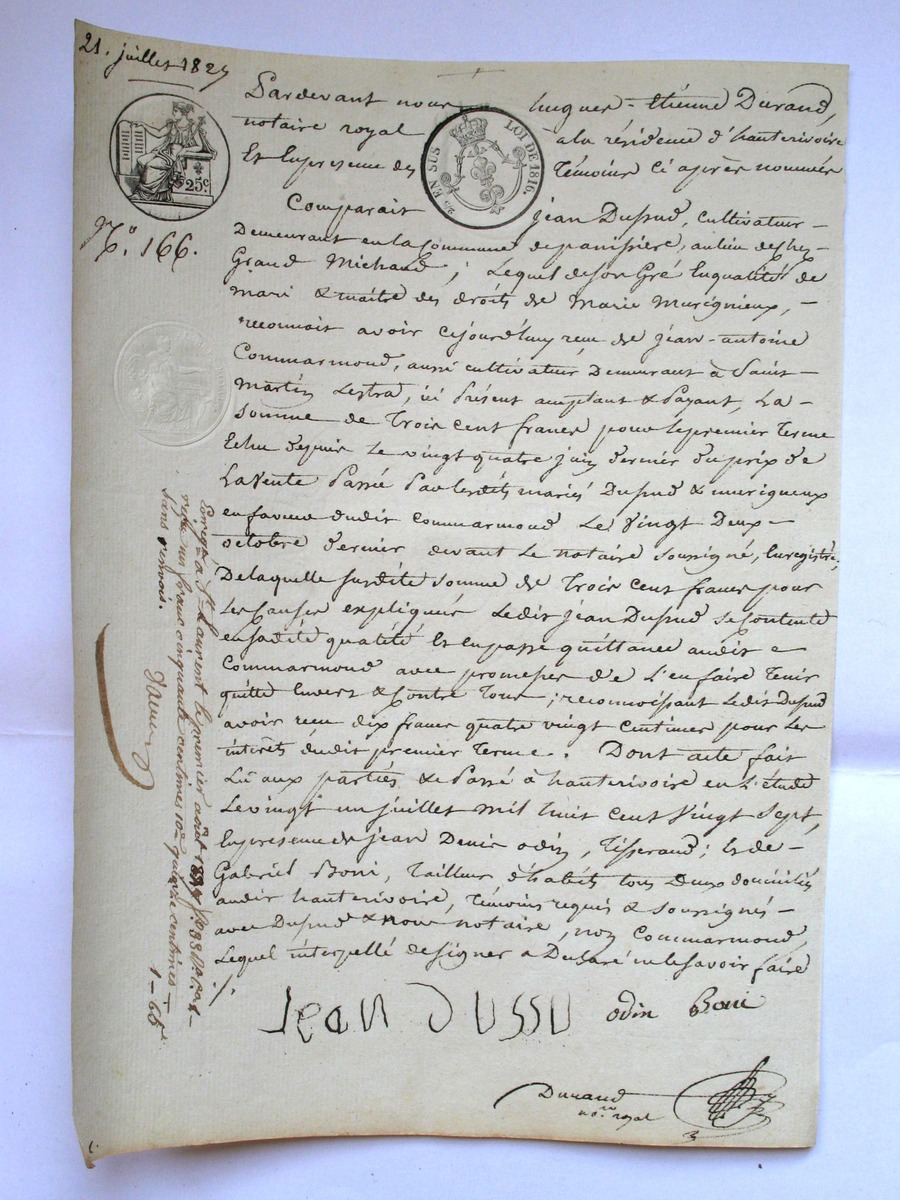 21. juillet 1827
Pardevant nous hugues-Etiénne Durand,
notaire royal a la résidence d'hauterivoire
Et Enpresence des Témoins Ci après nommés
25c
EN SUS LOI DE 1816.
N.o 166.
Comparait jean Dussud, cultivateur
Demeurant en la Commune depanissiére, aulieu deChez-
Grand Michaud; Lequel deson Gré Enqualité de
Mari & maître des droits de Marie Murigneux,
reconnait avoir Cejourd'huy recu de jean-antoine
Commarmond, aussi cultivateur Demeurant à Saint-
Martin Lestra, ici Présent acceptant & Payant, La
Somme de Trois Cent francs pour lepremier Terme
Echu depuis Le vingt quatre juin dernier du prix de
LaVente Passée Par lesdits mariés Dussud & murigneux
enfaveur dudit Commarmond Le Vingt Deux
octobre dernier devant Le notaire soussigné, Enregistré;
Delaquelle susdite somme de Trois Cent francs pour
Les Causes expliquées Ledit jean Dussud secontente
ensadite qualité Et enpasse quittance audit
Commarmond avec promesse de L'en faire Tenir
quitte Envers & Contre Tous; reconnoissant Ledit Dussud
avoir recu dix francs quatre vingt centimes pour Les
intérêts dudit premier Terme. Dont acte fait
Lû aux parties & Passé à hauterivoire en L'étude
Le vingt un juillet Mil huit Cent Vingt Sept,
Enpresence de jean Denis odin, Tisserand; Et de
Gabriel Boni, Tailleur d'habits tous Deux domiciliés
audit hauterivoire, Témoins requis & soussignés
avec Dussud & Nous notaire, non Commarmond,
Lequel interpellé designer a Déclaré nelesavoir faire
jean DUSSU odin Boni
Durand
no.re royal
Enregé a St. Laurent le premier aout 1827
reçu un franc cinquante centimes 10e quinze centimes
sans renvois.
1-65